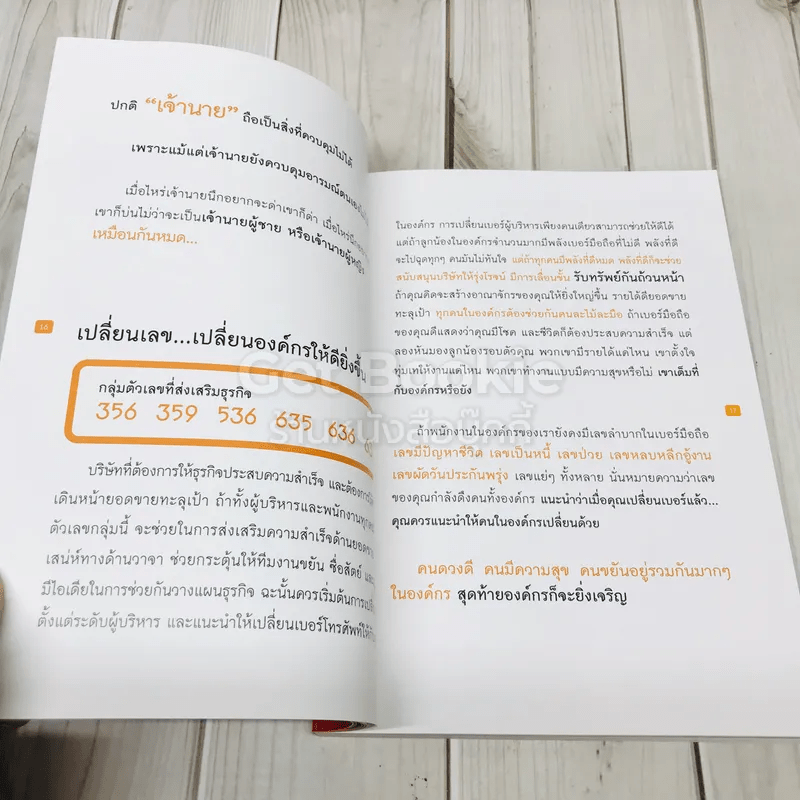 ปกติ “เจ้านาย” ถือเป็นสิ่งที่ควบคุมไม่ได้
เพราะแม้แต่เจ้านายยังควบคุมอารมณ์ตนเอง
เมื่อไหร่เจ้านายนึกอยากจะด่าเขาก็ด่า เมื่อไหร่นึก
เขาก็บ่นไม่ว่าจะเป็นเจ้านายผู้ชาย หรือเจ้านายผู้หญิง
เหมือนกันหมด...
16
เปลี่ยนเลข...เปลี่ยนองค์กรให้ดียิ่งขึ้น
กลุ่มตัวเลขที่ส่งเสริมธุรกิจ
356 359 536 635 636
บริษัทที่ต้องการให้ธุรกิจประสบความสำเร็จ และต้องการ
เดินหน้ายอดขายทะลุเป้า ถ้าทั้งผู้บริหารและพนักงาน
ตัวเลขกลุ่มนี้ จะช่วยในการส่งเสริมความสำเร็จด้านยอด
เสน่ห์ทางด้านวาจา ช่วยกระตุ้นให้ทีมงานขยัน ซื่อสัตย์
มีไอเดียในการช่วยกันวางแผนธุรกิจ ฉะนั้นควรเริ่มต้นการ
ตั้งแต่ระดับผู้บริหาร และแนะนำให้เปลี่ยนเบอร์โทรศัพท์
ในองค์กร การเปลี่ยนเบอร์ผู้บริหารเพียงคนเดียวสามารถช่วยให้ดีได้
แต่ถ้าลูกน้องในองค์กรจำนวนมากมีพลังเบอร์มือถือที่ไม่ดี พลังที่ดี
จะไปฉุดทุกๆ คนมันไม่ทันใจ แต่ถ้าทุกคนมีพลังที่ดีหมด พลังที่ดีก็จะช่วย
สนับสนุนบริษัทให้รุ่งโรจน์ มีการเลื่อนขั้น รับทรัพย์กันถ้วนหน้า
ถ้าคุณคิดจะสร้างอาณาจักรของคุณให้ยิ่งใหญ่ขึ้น รายได้ดียอดขาย
ทะลุเป้า ทุกคนในองค์กรต้องช่วยกันคนละไม้ละมือ ถ้าเบอร์มือถือ
ของคุณดีแสดงว่าคุณมีโชค และชีวิตก็ต้องประสบความสำเร็จ แต่
ลองหันมองลูกน้องรอบตัวคุณ พวกเขามีรายได้แค่ไหน เขาตั้งใจ
ทุ่มเทให้งานแค่ไหน พวกเขาทำงานแบบมีความสุขหรือไม่ เขาเต็มที่
กับองค์กรหรือยัง
17
ถ้าพนักงานในองค์กรของเรายังคงมีเลขลำบากในเบอร์มือถือ
เลขมีปัญหาชีวิต เลขเป็นหนี้ เลขป่วย เลขหลบหลีกอู้งาน
เลขผัดวันประกันพรุ่ง เลขแย่ๆ ทั้งหลาย นั่นหมายความว่าเลข
ของคุณกำลังดึงคนทั้งองค์กร แนะนำว่าเมื่อคุณเปลี่ยนเบอร์แล้ว...
คุณควรแนะนำให้คนในองค์กรเปลี่ยนด้วย
คนดวงดี คนมีความสุข คนขยันอยู่รวมกันมากๆ
ในองค์กร สุดท้ายองค์กรก็จะยิ่งเจริญ
Get Bookie
ร้านหนังสือบุ๊กกี้